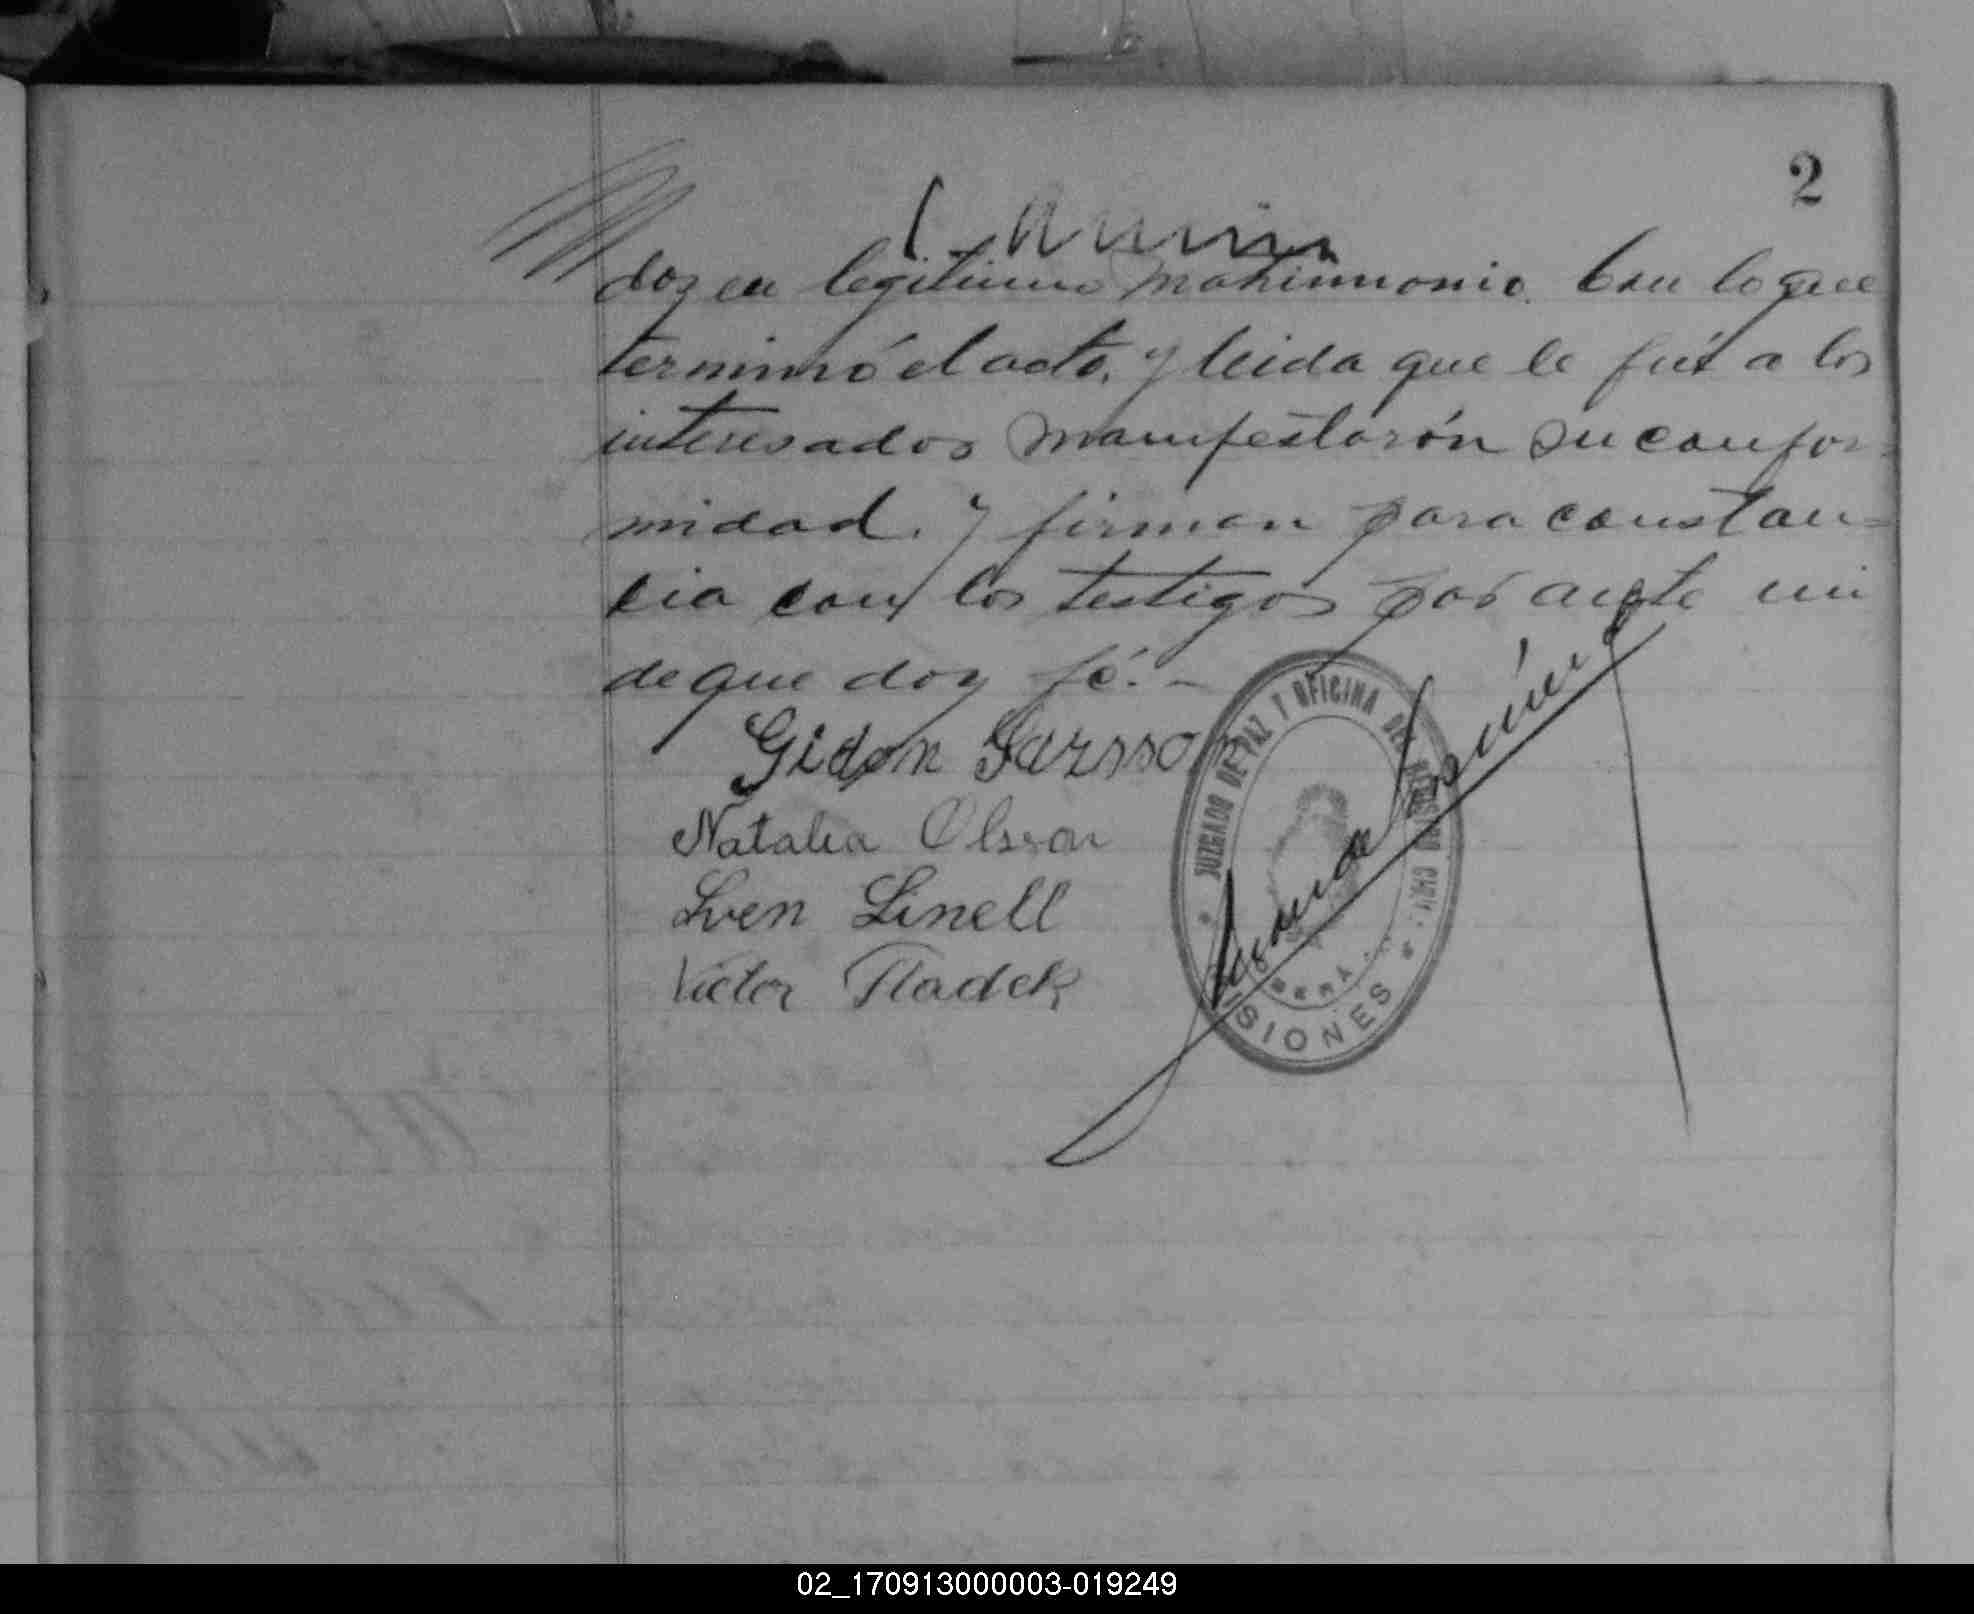 2
dos en legitimo matrimonio. Con lo que
terminó el acto, y leida que le fué a los
interesados manifestarón su confor-
midad. y firman para constan-
cia con los testigos por ante mi
de que doy fé.-
Gidon Larsson
Natalia Olsson
Sven Linell
Victor Tladek
JUZGADO DE PAZ Y OFICINA DEL REGISTRO CIVIL
MISIONES
02_170913000003-019249